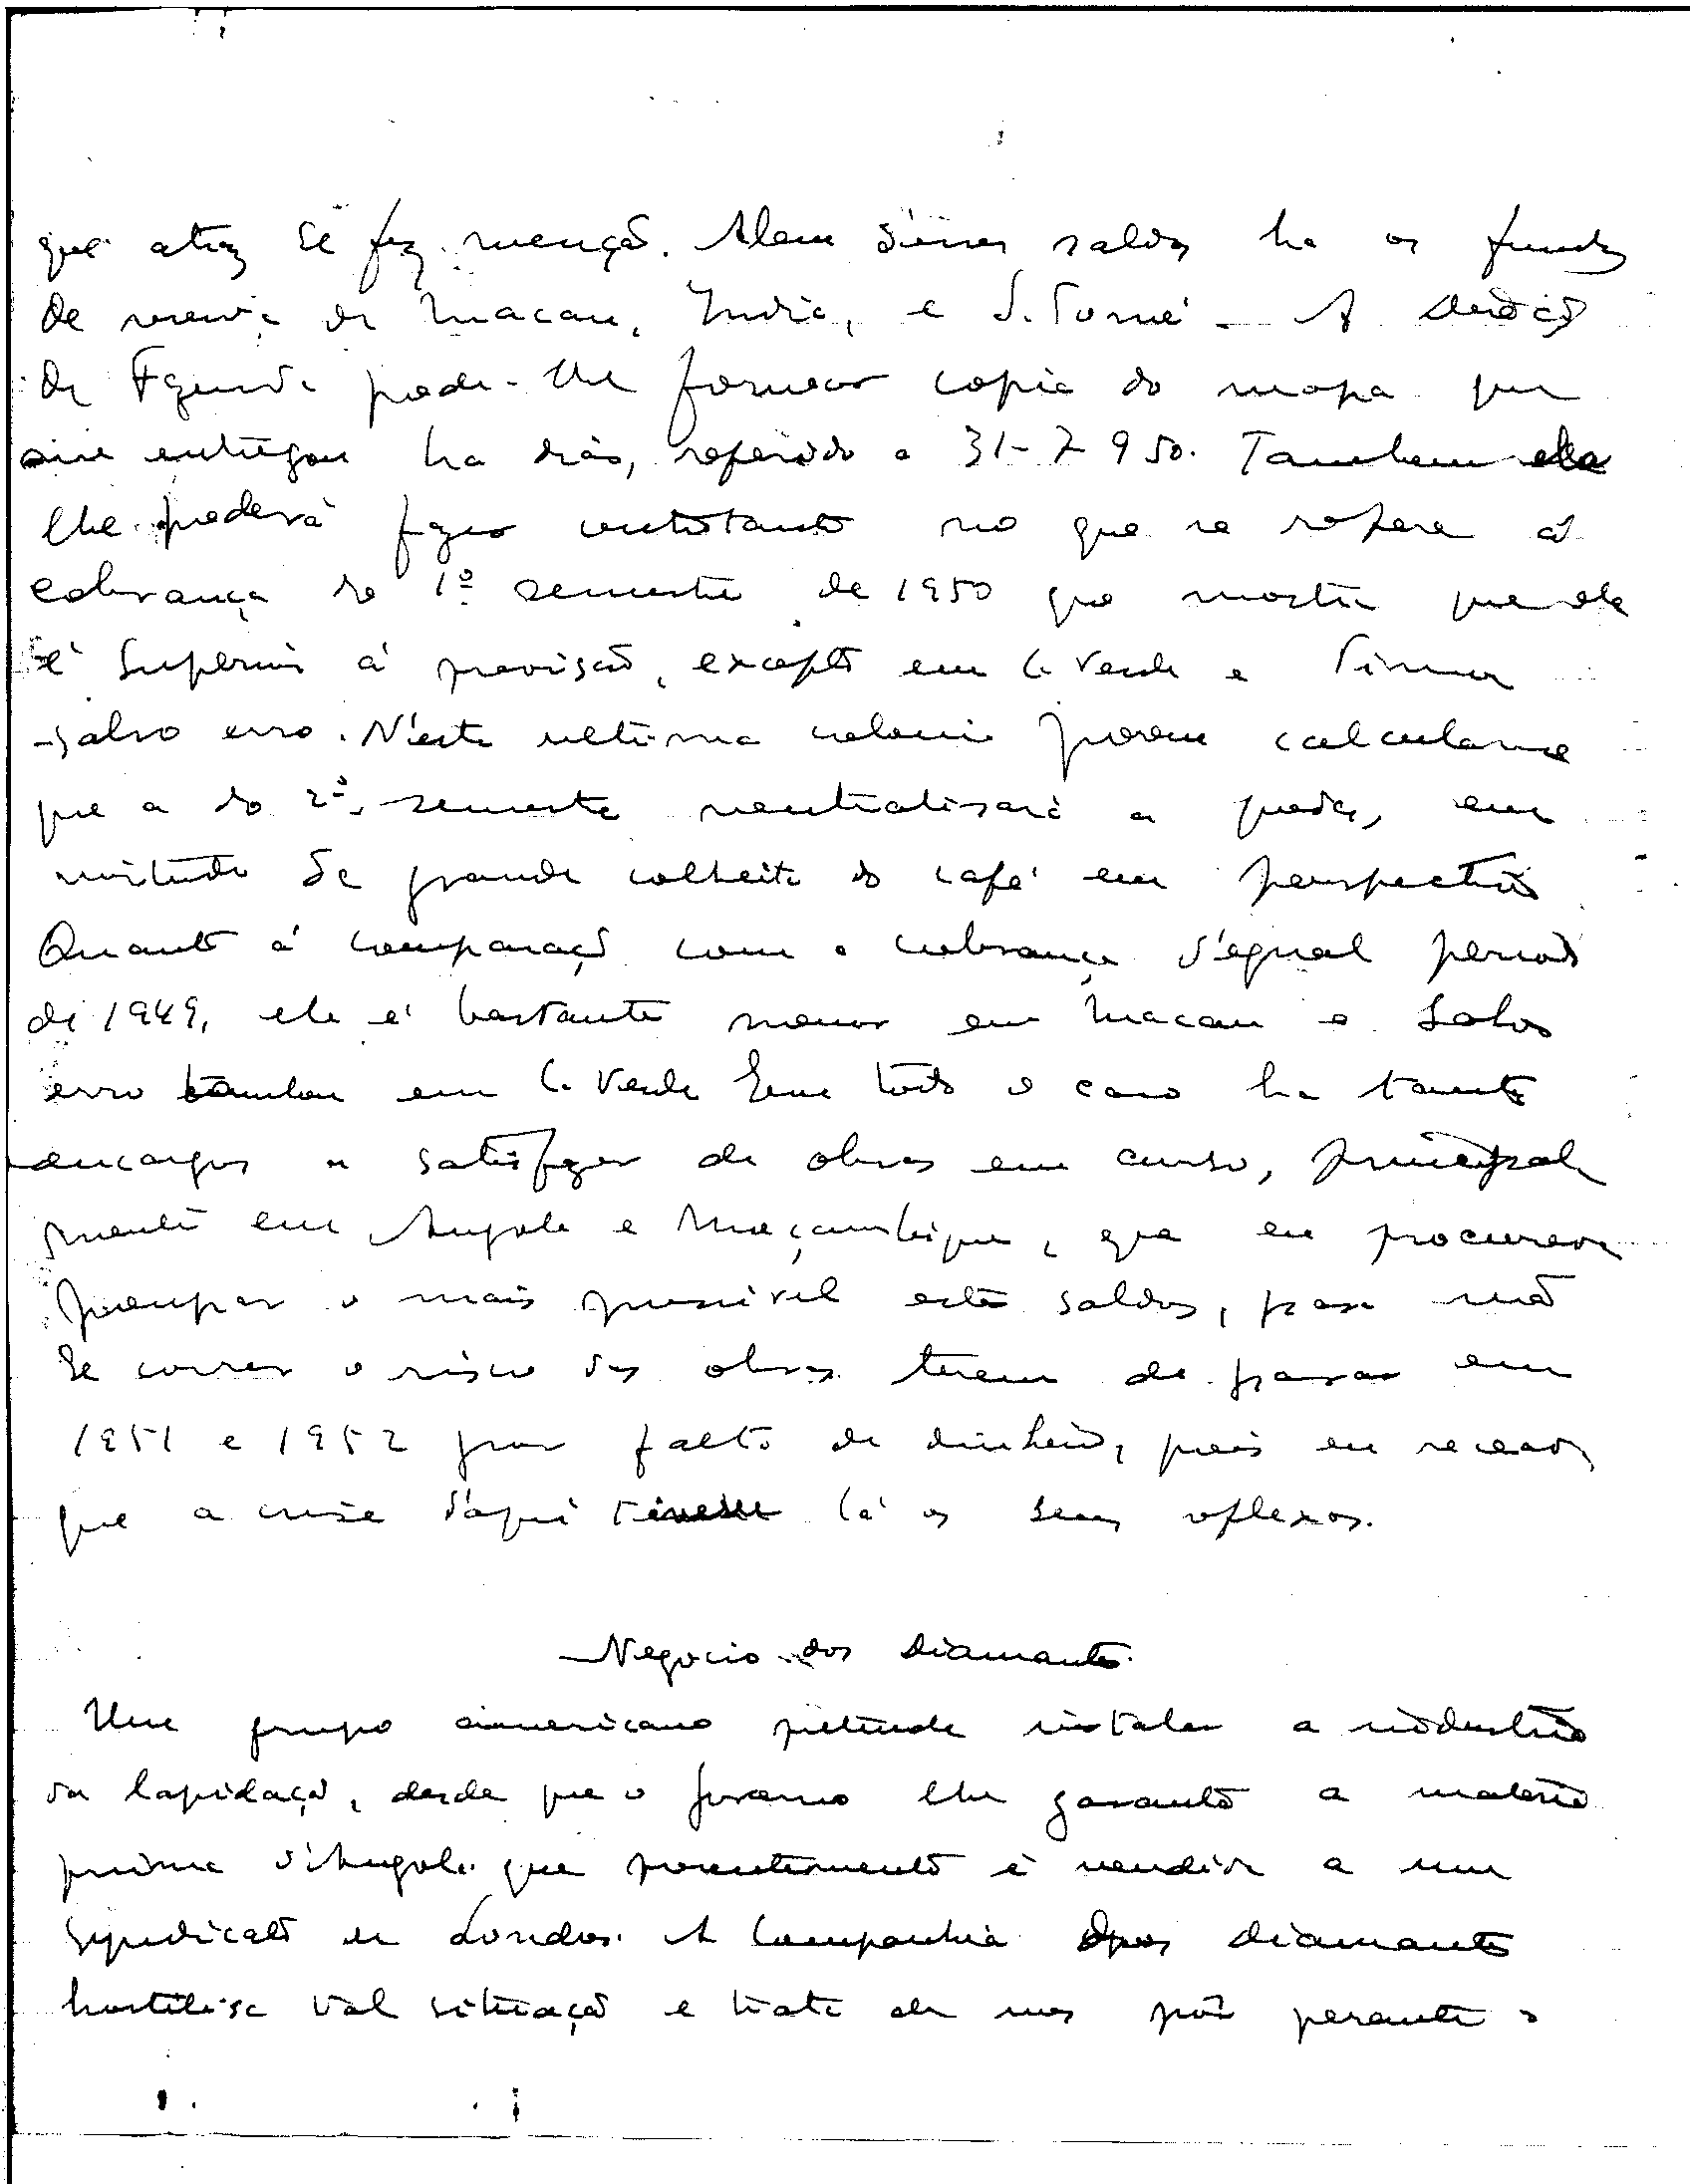 que atraz se fez menção. Alem d'esses saldos ha os fundos
de reserva de Macau, India, e S. Tomé - A Direcção
de Fazenda pode-lhe fornecer copia do mapa que
me entregou ha dias, referido a 31-7-950. Tambem ela
lhe poderá fazer entretanto no que se refere á
cobrança do 1º semestre de 1950 que mostra que ela
é superior á previsão, excepto em C. Verde e Timor
salvo erro. N'esta ultima colonia porem calculava-se
que a do 2º semestre neutralisará a queda, em
virtude da grande colheita do café em perspectiva
Quanto á comparação com a cobrança d'egual periodo
de 1949, ela é bastante menor em Macau e salvo
erro tambem em C. Verde Em todo o caso ha tantos
encargos a satisfazer de obras em curso, principal
mente em Angola e Moçambique, que eu procurava
poupar o mais possivel estes saldos, para não
se correr o risco das obras terem de parar em
1951 e 1952 por falta de dinheiro, pois eu receava
que a crise d'aqui tivesse lá os seus reflexos.
Negocio dos diamantes
Um grupo americano pretende instalar a industria
da lapidação, desde que o governo lhe garanta a materia
prima d'Angola que presentemente é vendida a um
syndicato de Londres. A Companhia dos diamantes
hostilisa tal situação e trata de nos pôr perante o